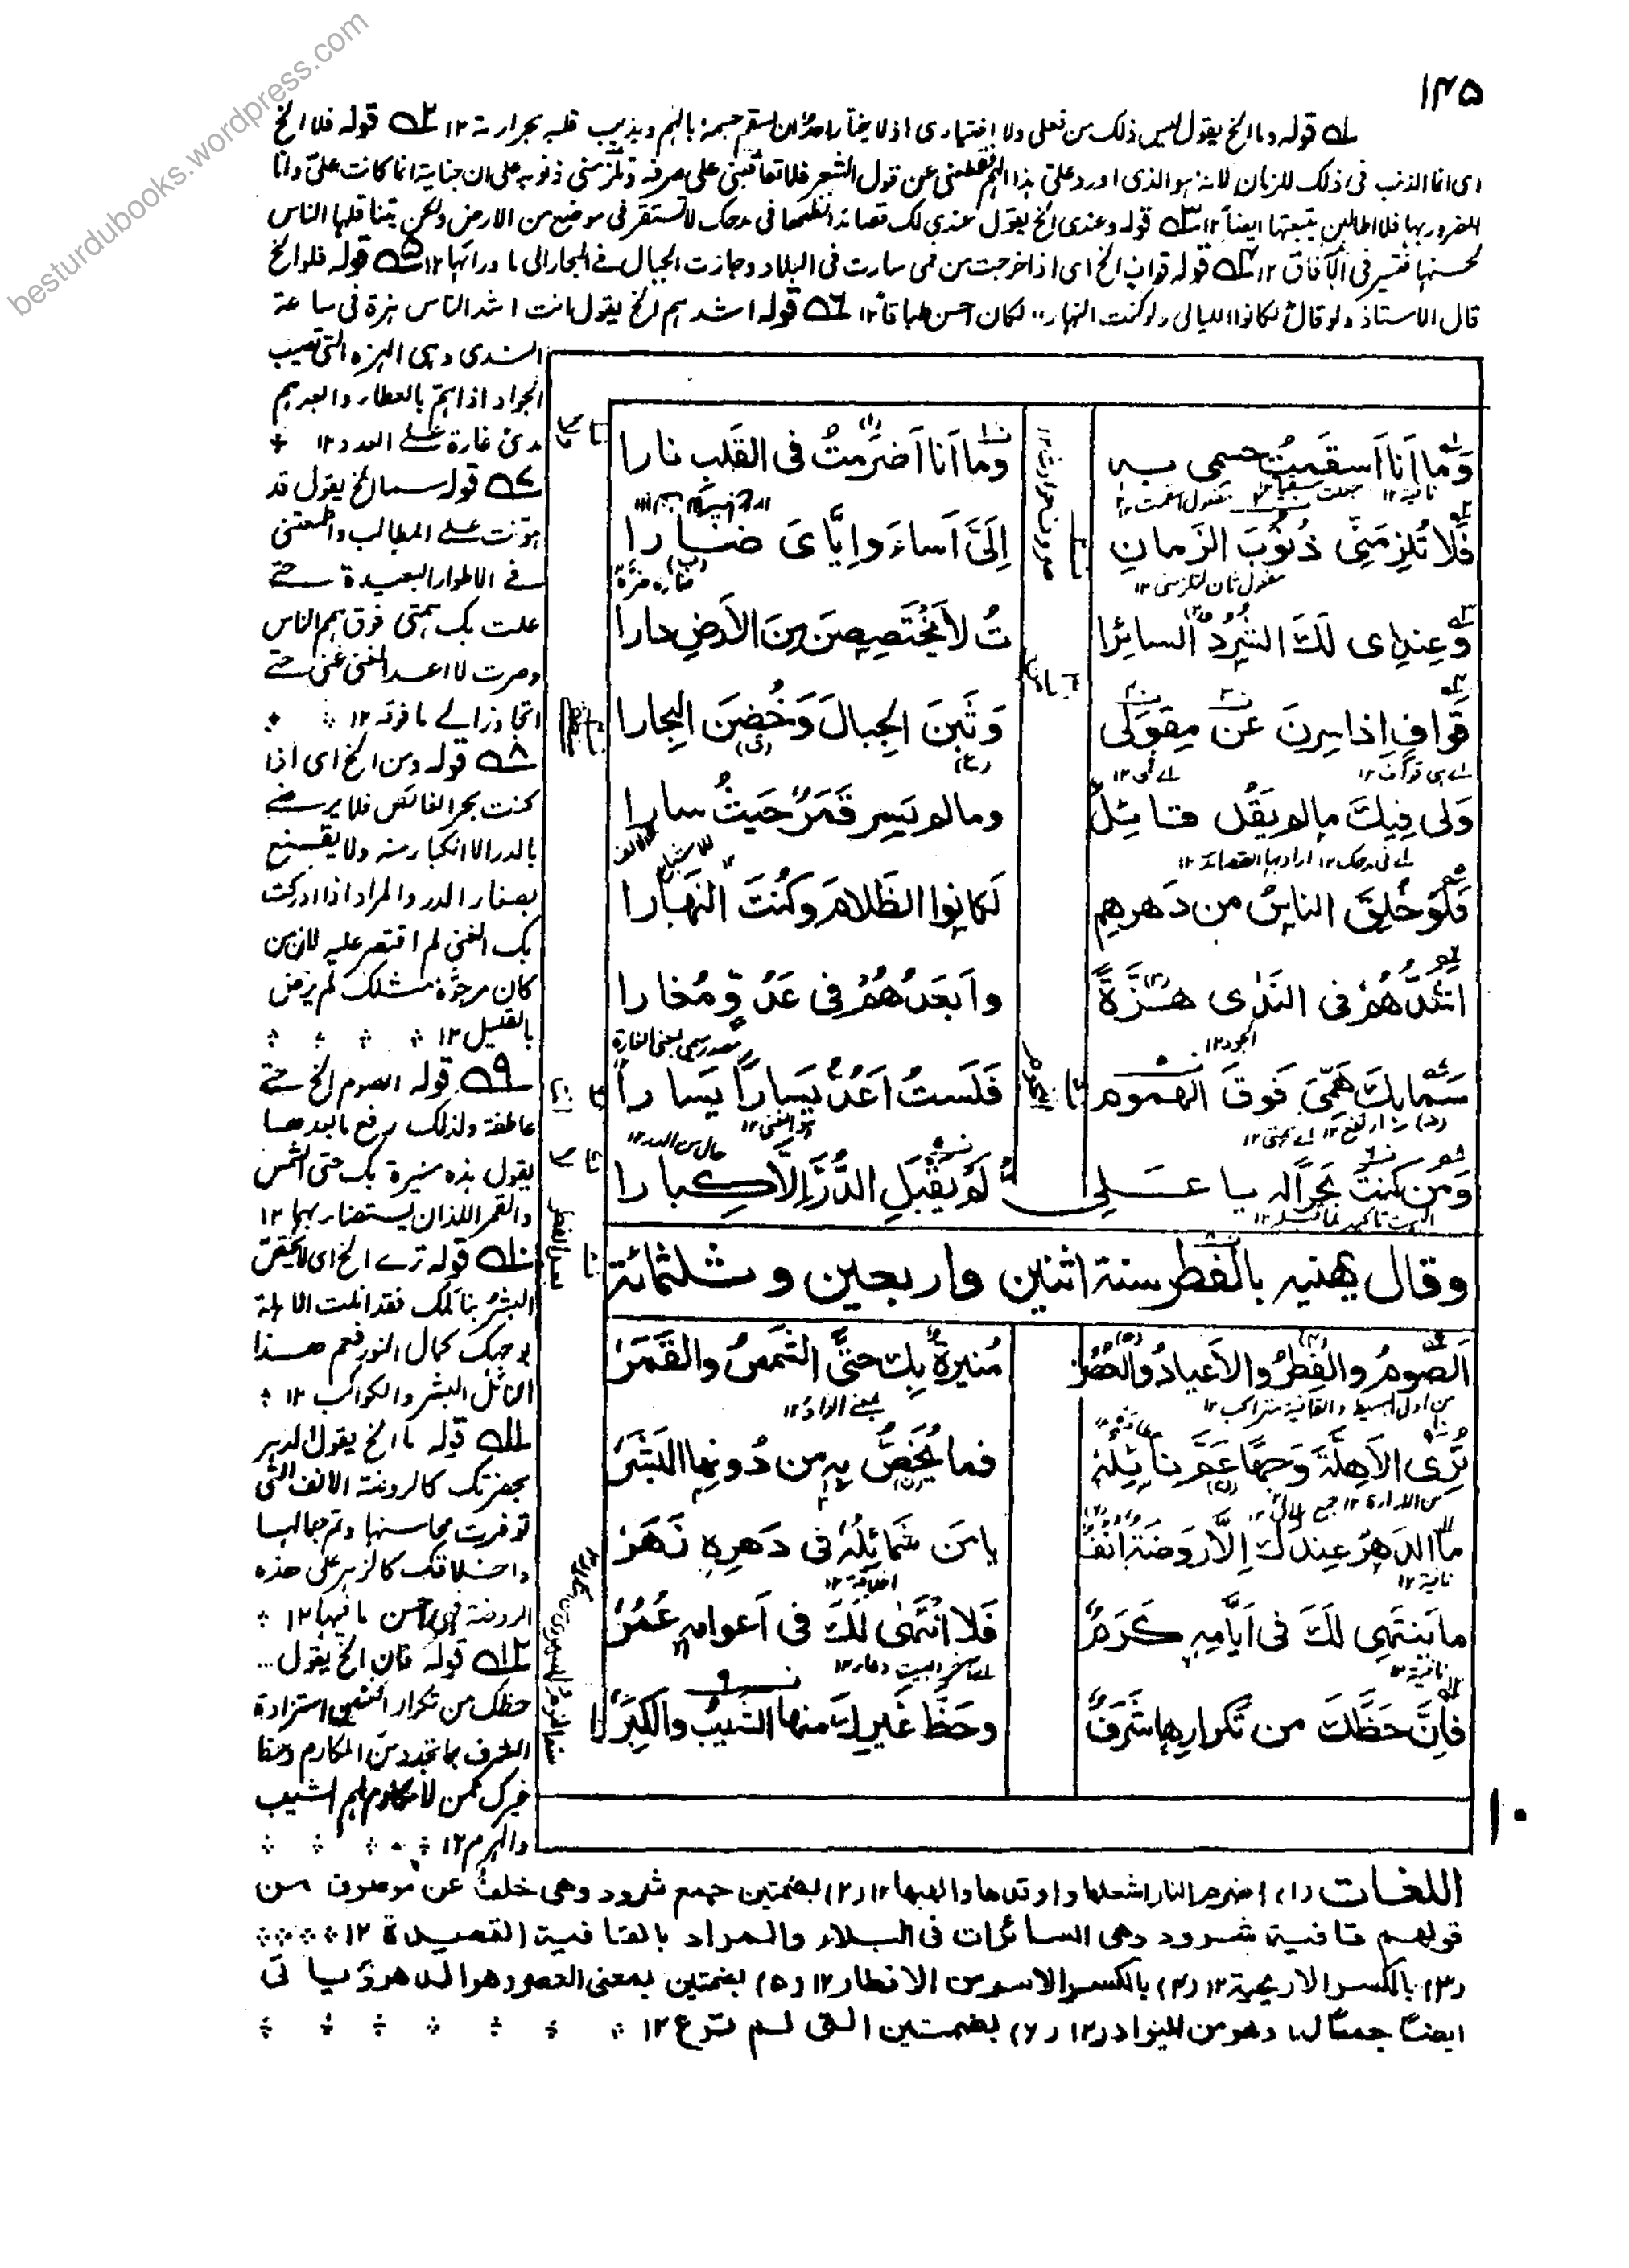 besturdubooks.wordpress.com
١٣٥
١ قوله وما الخ يقول ليس ذلك من فعلى ولا اختيارى اذ لا يختار احد ان يسقم جسمه بالهم ويذيب قلبه بحرارته ١٢ ٢ قوله فلا الخ
اى انما الذنب فى ذلك للزمان لانه هو الذى اورد على هذا الهم فقطعنى عن قول الشعر فلا تعاقبنى على صرفه وتلزمنى ذنوبه على ان جنايته انما كانت على وانا
المضرور بها فلا اطالبن بتبعتها ايضا ١٢ ٣ قوله وعندى الخ يقول عندى لك قصائد انظمها فى مدحك لا تستقر فى موضع من الارض ولكن يتناقلها الناس
لحسنها فتسير فى الآفاق ١٢ ٤ قوله قواف الخ اى اذا خرجت من فمى سارت فى البلاد وجازت الجبال فى البحار الى ما ورائها ١٢ ٥ قوله فلو الخ
قال الاستاذ ولو قال لكانوا الليالى وكنت النهار، لكان احسن طباقا ١٢ ٦ قوله اشدهم الخ يقول انت اشد الناس هزة فى ساعة
الندى وهى الهزه التى تصيب
الجواد اذا هم بالعطاء وابعدهم
مدى غارة على العدو ١٢
٧ قوله سما الخ يقول قد
هونت على المطالب واطمعتنى
فى الاطوار البعيدة حتى
علت بك همتى فوق همم الناس
وصرت لا اعد الغنى غنى حتى
اتجاوز الى ما فوقه ١٢
٨ قوله ومن الخ اى اذا
كنت بحر الغائص فلا يرضى
بالدر الا الكبار منه ولا يقنع
بصغار الدر والمراد اذا ادركت
بك الغنى لم اقتصر عليه لان من
كان مرجوه مثلك لم يرض
بالقليل ١٢
٩ قوله الصوم الخ حتى
عاطفة ولذلك رفع ما بعدها
يقول هذه منيرة بك حتى الشمس
والقمر اللذان يستضاء بهما ١٢
١٠ قوله ترى الخ اى لا يختص
البشر بنائلك فقد انلت الاهلة
بوجهك كمال النور فعم هذا
النائل البشر والكواكب ١٢
١١ قوله ما الخ يقول الدهر
بحضرتك كالروضة الانف التى
توفرت محاسنها وتم جمالها
واخلاقك كالزهر على هذه
الروضة فهى احسن ما فيها ١٢
١٢ قوله فان الخ يقول
حظك من تكرار السنين استزادة
الشرف بما تجدد من المكارم وحظ
غيرك ممن لا مكارم لهم الشيب
والهرم ١٢
وَما اَنا اَسقَمتُ جسمى به وَما اَنا اَضرَمتُ فى القَلبِ نارا
فَلا تُلزِمَنّى ذُنُوبَ الزَمانِ اِلَىَّ اَساءَ وايّاىَ ضارا
مفعول ثان لتلزمنى ١٢
وَعِندى لَكَ الشُرُدُ السائرا تُ لا يَختَصِصنَ مِنَ الاَرضِ دارا
قَوافٍ اِذا سِرنَ عَن مِقوَلى وَثَبنَ الجِبالَ وَخُضنَ البِحارا
اى فمى ١٢
وَلى فيكَ مالم يَقُل قائِلٌ ومالم يَسِر قَمَرٌ حَيثُ سارا
اى فى مدحك ١٢ اراد بها القصائد ١٢
فَلَو خُلِقَ الناسُ من دَهرِهِم لَكانوا الظَلامَ وكُنتَ النَهارا
اَشَدُّهُم فى النَدٰى هَزَّةً واَبعَدُهُم فى عَدُوٍّ مُغارا
الجود ١٢ مصدر ميمى بمعنى الغارة
سَما بِكَ هَمِّىَ فَوقَ الهموم فَلَستُ اَعُدُّ يَسارًا يَسارا
هو الغنى ١٢ حال من الدر ١٢
وَمن كُنتَ بَحرًا له يا عَلى لَم يَقبَلِ الدُرَّ اِلّا كِبارا
وقال يهنيه بالفطر سنة اثنين واربعين وثلثمائة
اَلصَومُ والفِطرُ والاَعيادُ والعُصُرُ مُنيرةٌ بِكَ حتّى الشَمسُ والقَمَرُ
من اول البسيط والقافية متراكب ١٢ بمعنى الواو ١٢
تُرِى الاَهِلَّةَ وَجهًا عَمَّ نائِلُهٗ فما يُخَصُّ به من دُونِها البَشَرُ
ما الدَهرُ عِندَكَ اِلّا رَوضَةٌ اُنُفٌ يا مَن شَمائِلُهٗ فى دَهرِهٖ زَهَرُ
نافية ١٢ اخلاقه ١٢
ما يَنتَهى لَكَ فى اَيّامِهٖ كَرَمٌ فَلا انتَهٰى لَكَ فى اَعوامِهٖ عُمُرُ
نافية ١٢
فاِنَّ حَظَّكَ من تَكرارِها شَرَفٌ وحَظُّ غَيرِكَ منها الشَيبُ والكِبَرُ
١٠
اللغات (١) اضرم النار اشعلها واوقدها والهبها ١٢ (٢) بضمتين جمع شرود وهى خلف عن موصوف من
قولهم قافية شرود وهى السائرات فى البلاد والمراد بالقافية القصيدة ١٢
(٣) بالكسر الاريحية ١٢ (٤) بالكسر الاسم من الافطار ١٢ (٥) بضمتين بمعنى العصور هو الدهر وياتى
ايضا جمعا له وهو من النوادر ١٢ (٦) بضمتين التى لم ترع ١٢